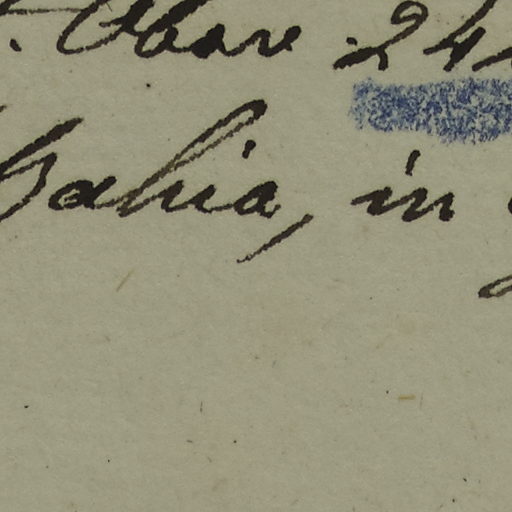 Obare 24
Bahia, in